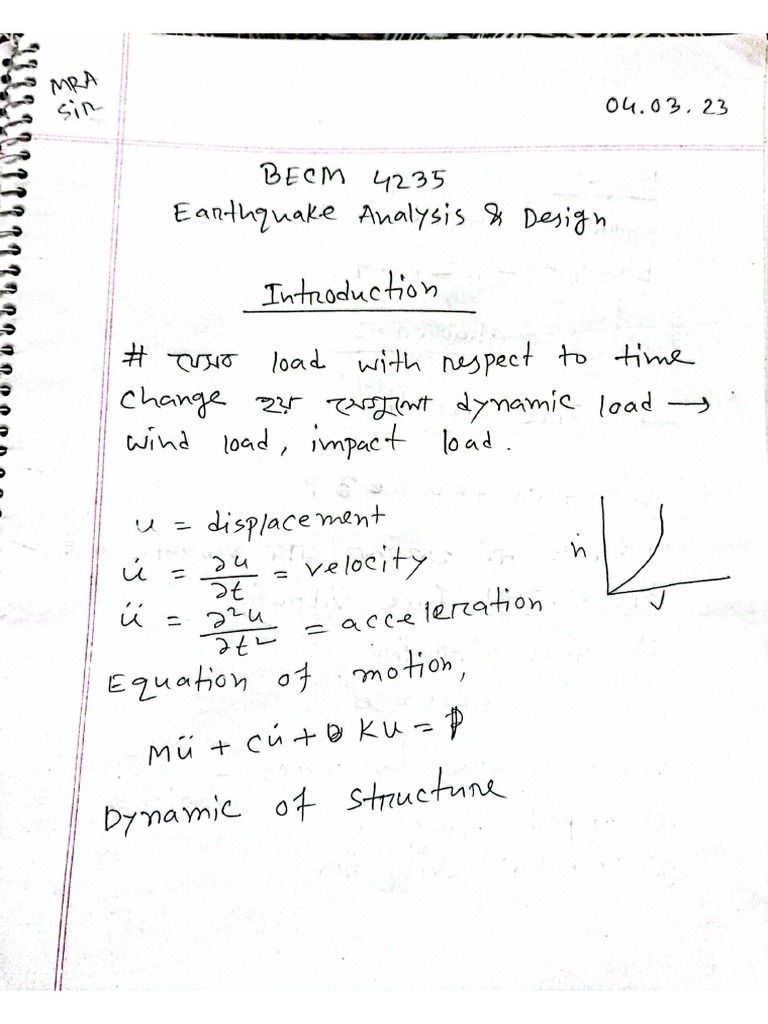 MRA
Sir
04.03.23
BECM 4235
Earthquake Analysis & Design
Introduction
# যেসব load with respect to time
change হয় সেগুলো dynamic load →
wind load, impact load.
u = displacement
u̇ = ∂u/∂t = velocity
ü = ∂²u/∂t² = acceleration
Equation of motion,
Mü + Cu̇ + KU = P
Dynamic of structure